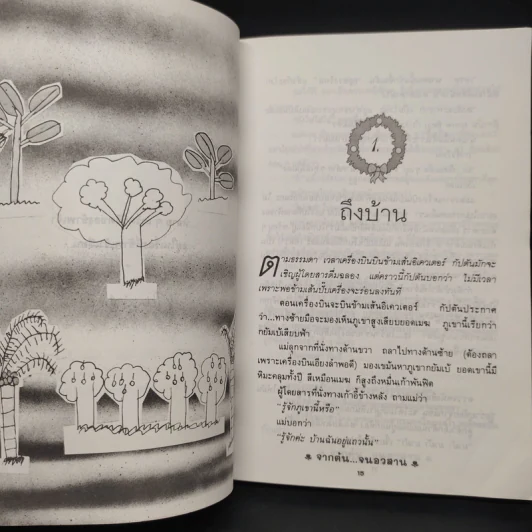 1.
ถึงบ้าน
ตามธรรมดา เวลาเครื่องบินบินข้ามเส้นอิเควเตอร์ กัปตันมักจะ
เชิญผู้โดยสารดื่มฉลอง แต่คราวนี้กัปตันบอกว่า ไม่มีเวลา
เพราะพอข้ามเส้นปั๊บเครื่องจะร่อนลงทันที
ตอนเครื่องบินจะบินข้ามเส้นอิเควเตอร์ กัปตันประกาศ
ว่า...ทางซ้ายมือจะมองเห็นภูเขาสูงเสียบยอดเมฆ ภูเขานี้เรียกว่า
กยัมเบ้เสียบฟ้า
แม่ลุกจากที่นั่งทางด้านขวา ถลาไปทางด้านซ้าย (ต้องถลา
เพราะเครื่องบินเอียงลำพอดี) มองเขม้นหาภูเขากยัมเบ้ ยอดเขานี้มี
หิมะคลุมทั้งปี สีเหมือนเมฆ ก็สูงถึงหมื่นเก้าพันฟีต
ผู้โดยสารที่นั่งทางเก้าอี้ข้างหลัง ถามแม่ว่า
"รู้จักภูเขานี้หรือ"
แม่บอกว่า
"รู้จักค่ะ บ้านฉันอยู่แถวนั้น"
จากต้น...จนอวสาน